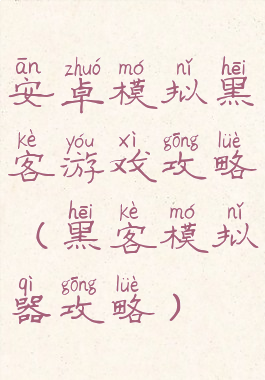 ān zhuó mó nǐ hēi
安卓模拟黑
kè yóu xì gōng lüè
客游戏攻略
hēi kè mó nǐ
(黑客模拟
qì gōng lüè
器攻略)